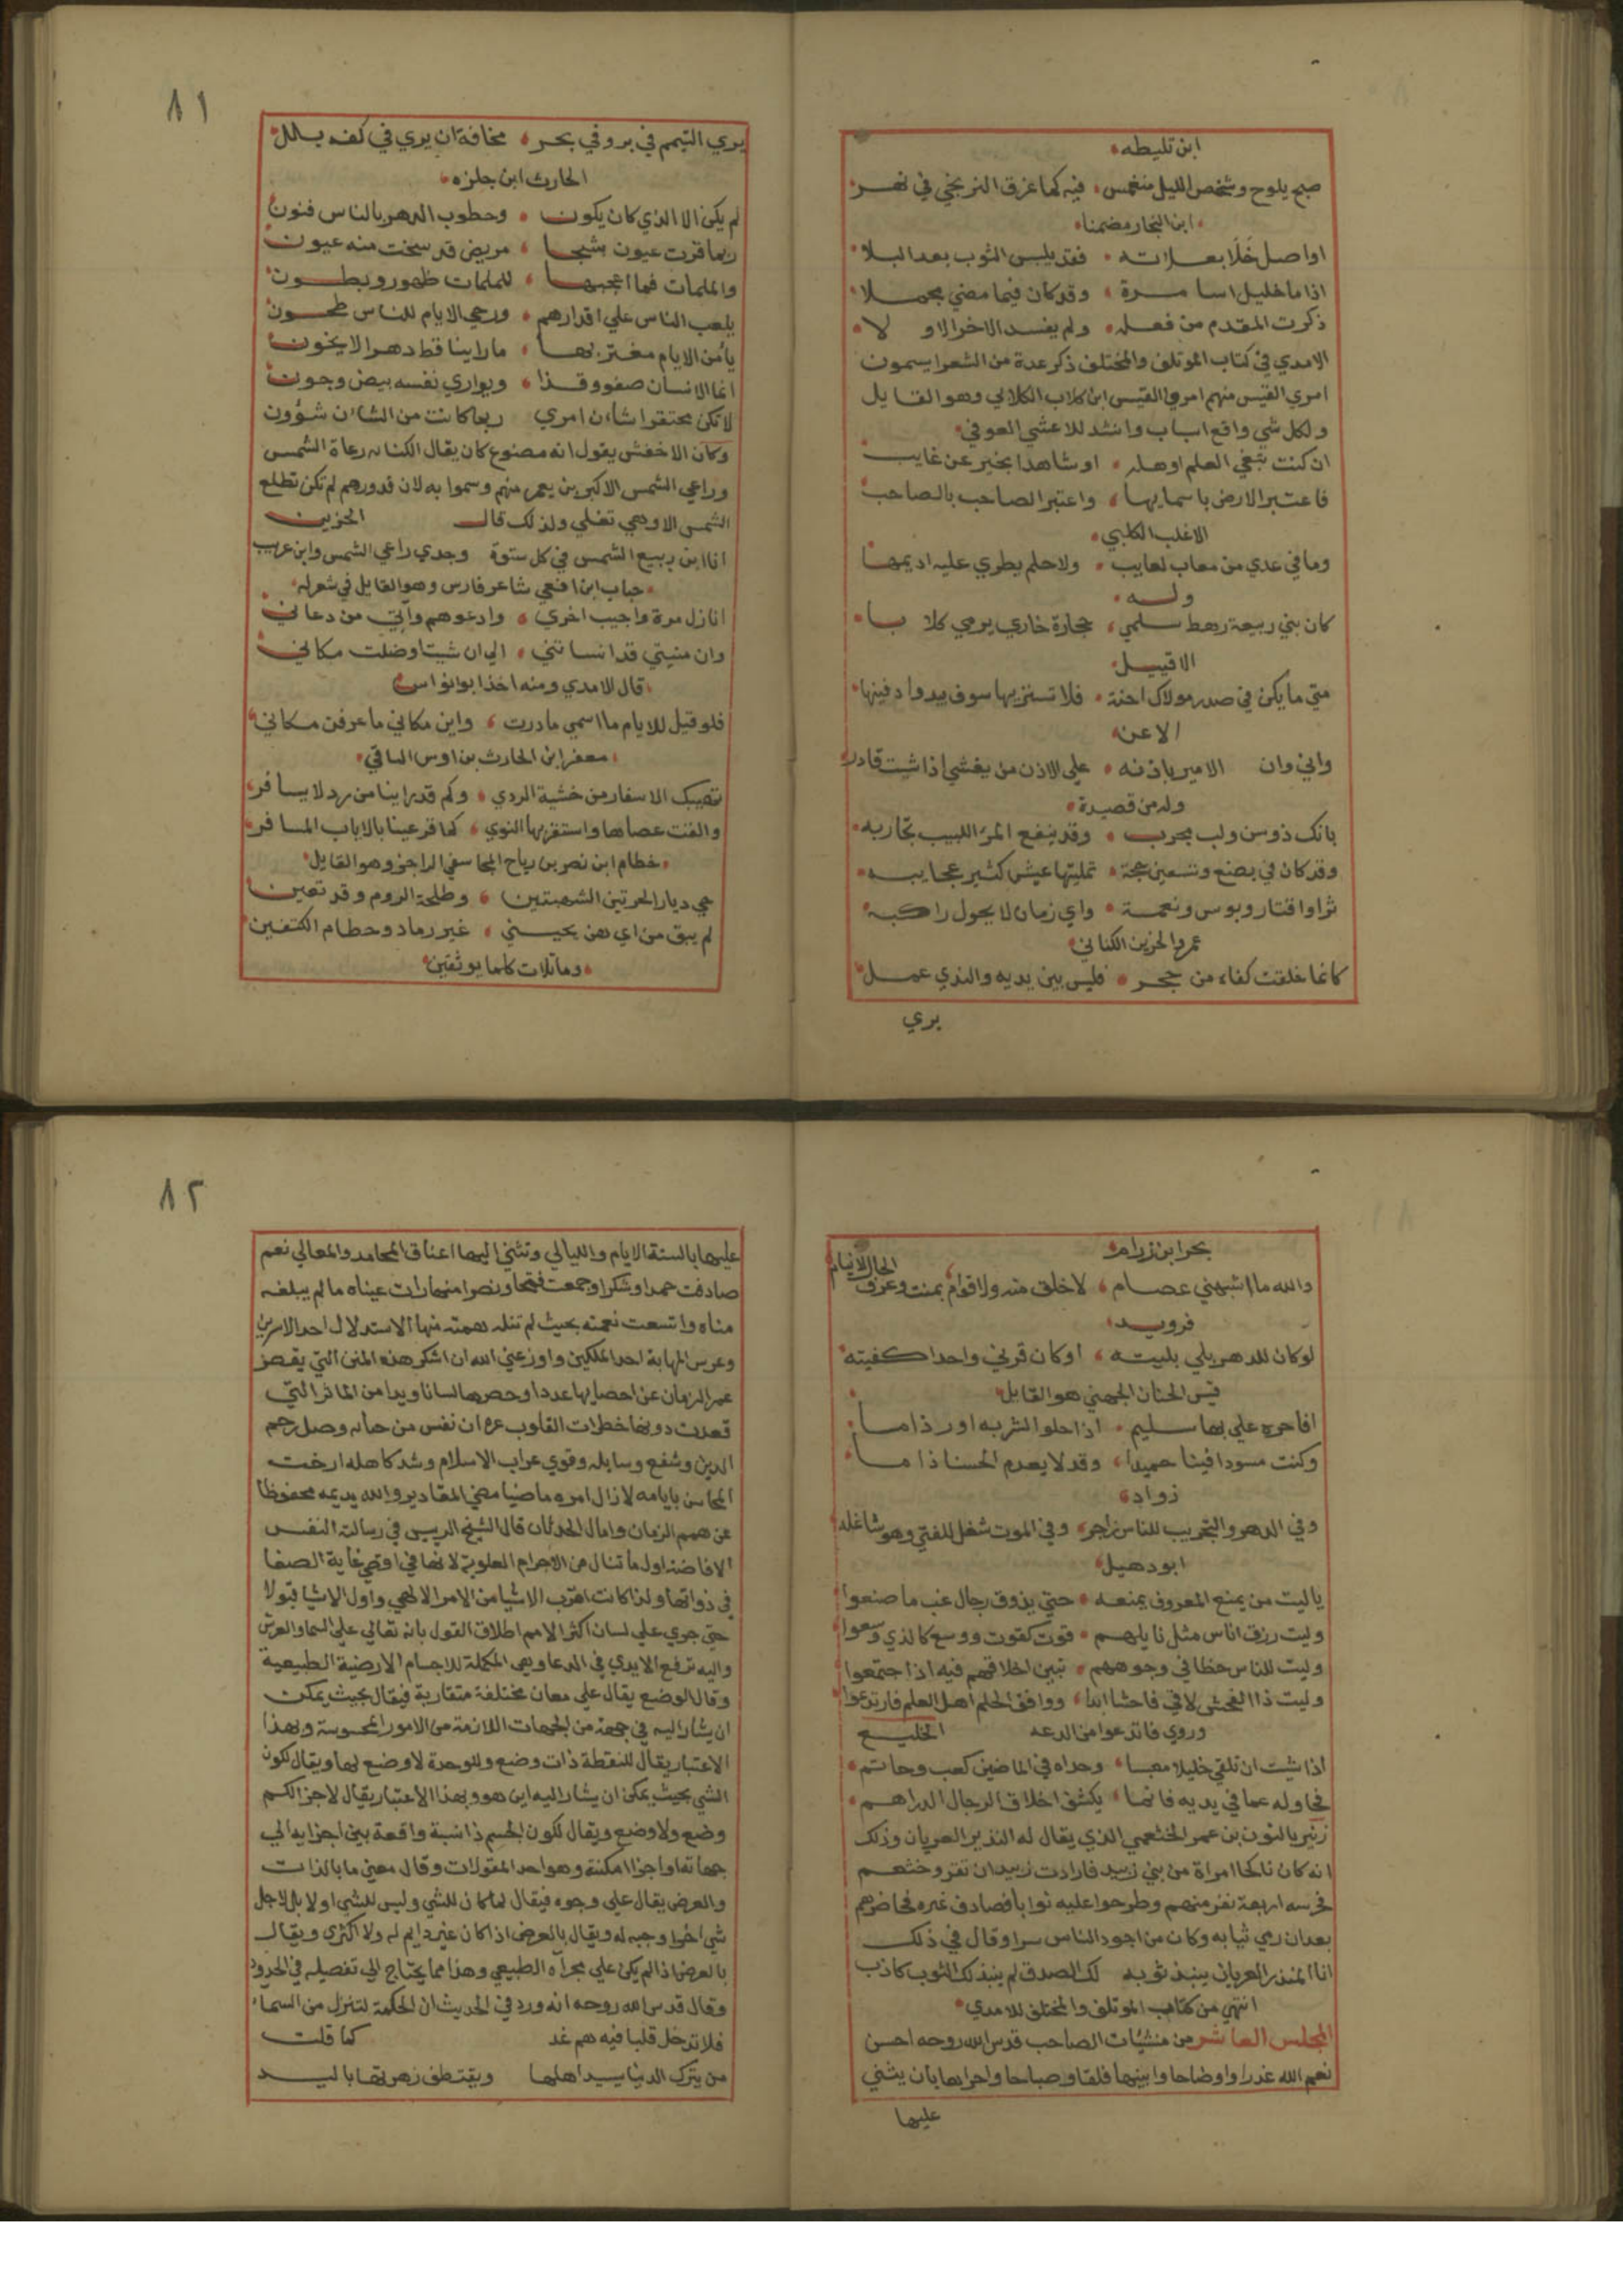 ابن تليطه
صبح يلوح وشخص الليل منغمس فيه كما غرق الزنجي في نهر
ابن النجار مضمنا
اواصل خلا بعلاته فقد يلبس الثوب بعد البلا
اذا ما خليل اسا مرة وقد كان فيما مضي مجملا
ذكرت المقدم من فعله ولم يفسد الاخر الاولا
الامدي في كتاب الموتلف والمختلف ذكر عدة من الشعرا يسمون
امري القيس منهم امري القيس ابن كلاب الكلابي وهو القايل
ولكل شي واقع اسباب وانشد للاعشي العوفي
ان كنت تبغي العلم اوهله او شاهدا بخبر عن غايب
فاعتبر الارض باسمايها واعتبر الصاحب بالصاحب
الاغلب الكلبي
وما في عدي من معاب لعايب ولا حلم يطري عليه اديمها
وله
كان بني ربيعة رهط سلمي حجارة خاري يرمي كلابا
الاقيبل
متي ما يكن في صدر مولاك احنة فلا تستنزيها سوف يبدوا دفينها
الاعن
واني وان الامير باذنه علي الاذن من يغشي اذا شيت قادر
وله من قصيدة
بانك ذو سن ولب مجرب وقد ينفع المرا اللبيب تجاربه
وقد كان في بضع وتسعين حجة تمليتها عيش كثير عجايبه
ثراوا قتار وبوس ونعمة واي زمان لا يجول راكبه
عمروا الحزين الكناني
كانما خلقت كفاه من حجر فليس بين يديه والندي عمل
يري
٨١
يري التيمم في بر وفي بحر مخافة ان يري في كفه بلل
الحارث ابن حلزه
لم يكن الا الذي كان يكون وخطوب الدهر بالناس فنون
ربما قرت عيون بشجا مريض قد سخت منه عيون
والملمات فما اعجبها للملمات ظهور وبطون
يلعب الناس علي اقدارهم ورحي الايام للناس طحون
يأمن الايام مغتر بها ما راينا قط دهرا لا يخون
انما الانسان صفو وقذا ويواري نفسه بيض وجون
لا تكن محتقرا شان امري ربما كانت من الشان شؤون
وكان الاخفش يقول انه مصنوع كان يقال الكنانه رعاة الشمس
وراعي الشمس الاكبر بن يعمر منهم وسموا به لان قدورهم لم تكن تطلع
الشمس الا وهي تغلي ولذلك قال الحزين
انا ابن ربيع الشمس في كل ستوة وجدي راعي الشمس وابن عريب
حباب ابن افعي شاعر فارس وهو القايل في شعره
انازل مرة واجيب اخري وادعوهم واتي من دعاني
وان منيتي قد انساتني الي ان شيت او ضلت مكاني
قال الامدي ومنه اخذ ابو نواس
فلو قيل للايام ما اسمي ما درت واين مكاني ما عرفن مكاني
معقر ابن الحارث بن اوس الباقي
تهيبك الاسفار من خشية الردي وكم قد راينا من رد لا يسافر
والقت عصاها واستقر بها النوي كما قر عينا بالاياب المسافر
خطام ابن نصر بن رياح المجاسفي الراجز وهو القايل
حي ديار الحرتين الشهبتين وطلحة الروم وقد تعين
لم يبق من اي هن يحيسني غير رماد وحطام الكتفين
وماثلات كلما يوثقين
بحر ابن زرام
والله ما اشبهني عصام لا خلق منه ولا قوام بمنت وعرق الخال لا ينام
فرويد
لو كان للدهر بلي بليته او كان قرني واحدا كفيته
قيس الحنان الجهني هو القايل
افاحره علي بها سليم اذا حلوا الشربه اورذاما
وكنت مسودا فينا حميدا وقد لا يعدم الحسنا ذاما
زواد
وفي الدهر والتجريب للناس زاجر وفي الموت شغل للفتي وهو شاغله
ابو دهبل
يا ليت من يمنع المعروف يمنعه حتي يذوق رجال غب ما صنعوا
وليت رزق اناس مثل نايلهم قوت كقوت ووسع كالذي وسعوا
وليت للناس حظا في وجوههم تبين اخلاقهم فيه اذا اجتمعوا
وليت ذا الفحش لاقي فاحشا ابدا ووافق الحلم اهل العلم فارتدعوا
وروي فاتدعوا من الدعه الخليع
اذا شيت ان تلقي خليلا معبسا وجداه في الماضين كعب وحاتم
فحاوله عما في يديه فانما يكشف اخلاق الرجال الدراهم
زنير بالنون بن عمر الخثعمي الذي يقال له النذير العريان وذلك
انه كان ناكحا امراة من بني زبيد فارادت زبيد ان تغزو خثعم
فحرسه اربعة نفر منهم وطرحوا عليه ثوابا فصادف غره فحاضرهم
بعد ان رمي ثيابه وكان من اجود الناس سرا وقال في ذلك
انا المنذر العريان ينبذ ثوبه لك الصدق لم ينبذ لك الثوب كاذب
انتهي من كتاب الموتلف والمختلف للامدي
المجلس العاشر من منشئات الصاحب قدس الله روحه احسن
نعم الله غدرا واوضاحا وابينها فلقا وصباحا واحراها بان يثني
عليها
٨٢
عليها بالسنة الايام والليالي وتثني اليها اعناق المحامد والمعالي نعم
صادفت حمدا وشكرا وجمعت فتحا ونصرا منها رات عيناه ما لم يبلغه
مناه واتسعت نعمته بحيث لم تنله همته منها الاستدلال احد الاسرين
وعرس المهابة احد الملكين واوزعني الله ان اشكر هذه المنن التي يقصر
عمر الزمان عن احصايها عددا وحصرها لسانا ويدا من الماثر التي
قعدت دونها خطرات القلوب عزه ان نفس من حاله وصل رحم
الدين وشفع وسايله وقوي عراب الاسلام وشد كاهله ارخت
المحاسن بايامه لا زال امره ماضيا مضي المقادير والله يديمه محفوظا
عن همم الزمان وامال الحدثان قال الشيخ الرييس في رسالة النفس
الافاضة اول ما تنال من الاجرام العلوية لانها في اقصي غاية الصفا
في ذواتها ولذا كانت اقرب الاشيا من الامر الالهي واول الاشيا قبولا
حتي جري علي لسان اكثر الامم اطلاق القول بانه تعالي علي السما والعرش
واليه ترفع الايدي في الدعا وهي المكملة للاجسام الارضية الطبيعية
وقال الوضع يقال علي معان مختلفة متقاربة فيقال بحيث يمكن
ان يشار اليه في جهة من الجهات اللازمة من الامور المحسوسة وبهذا
الاعتبار يقال للنقطة ذات وضع وللوحدة لا وضع لها ويقال لكون
الشي بحيث يمكن ان يشار اليه اين هو وبهذا الاعتبار يقال لاجز الكم
وضع ولا وضع ويقال لكون الجسم ذا نسبة واقعة بين اجزايه الي
جهاته او اجزا امكنته وهو احد المقولات وقال معني ما بالذات
والعرض يقال علي وجوه فيقال لما كان للشي وليس للشي اولا بل لاجل
شي اخر اوجبه له ويقال بالعرض اذا كان غير دايم له ولا اكثري ويقال
بالعرض اذا لم يكن علي مجراه الطبيعي وهذا مما يحتاج الي تفصيله في الحدود
وقال قدس الله روحه انه ورد في الحديث ان الحكمة لتنزل من السماء
فلا تدخل قلبا فيه هم غد كما قلت
من يترك الدنيا يسيد اهلها ويقتطف زهرتها باليد